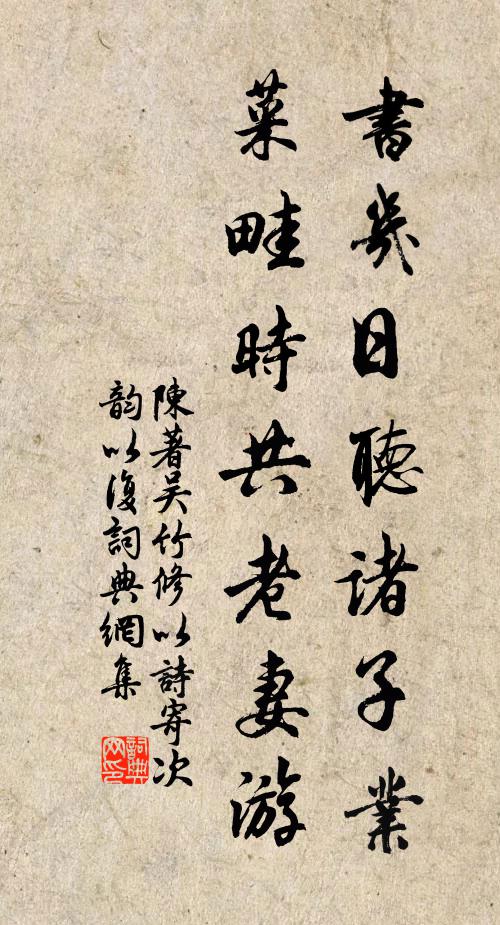 書几日聽諸子業
菜畦時共老妻游
陳著吴竹修以詩寄次
韵以復詞典網集
詞典
网印